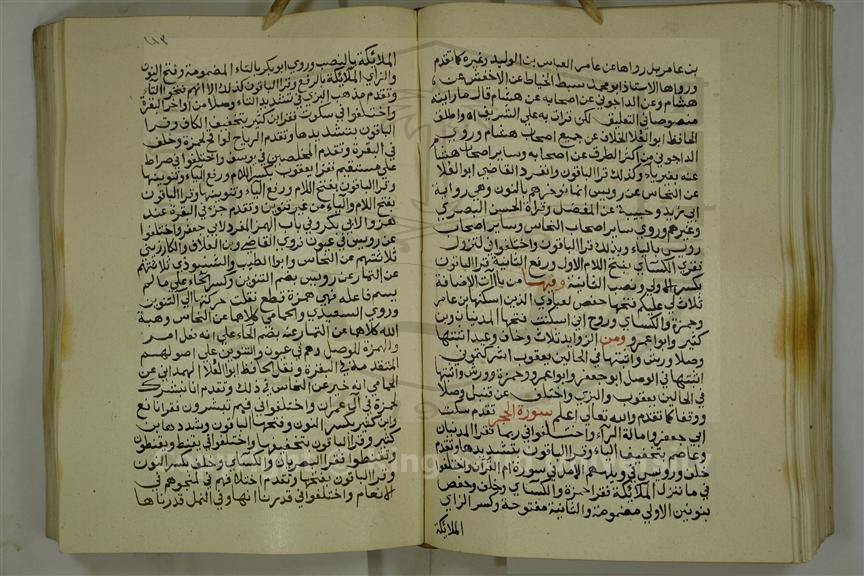 بن عامر بل رواها عن عامر العباس بن الوليد وغيره كما تقدم
ورواها الاستاذ ابو محمد سبط الخياط عن الاخفش عن
هشام وعن الداجوني عن اصحابه عن هشام وقال ما رايته
منصوصا في التعليق لكن قرات به على الشريف اه واطلق
الحافظ ابو العلا الخلاف عن جميع اصحاب هشام وروي
الداجوني من اكثر الطرق عن اصحابه وساير اصحاب هشام
عنه بغير ياء وكذلك قرا الباقون وانفرد القاضي ابو العلا
عن النحاس عن رويس انما نوخرهم بالنون وهي رواية
ابي زيد وجبلة عن المفضل وقراة الحسن البصري
وغيرهم وروي ساير اصحاب النحاس وساير اصحاب
رويس بالياء وبذلك قرا الباقون واختلفوا في لتزول
فقرا الكسائي بفتح اللام الاولى ورفع الثانية وقرا الباقون
بكسر الاولي ونصب الثانية وفيها من ياآت الاضافة
ثلاث لي عليكم فتحها حفص لعبادي الذين اسكنها بن عامر
وحمزة والكسائي وروح اني اسكنت فتحها المدنيان وبن
كثير وابو عمرو ومن الزوايد ثلاث وخاف وعيد اثبتها
وصلا ورش واثبتها في الحالين يعقوب اشركتموني
اثبتها في الوصل ابو جعفر وابو عمرو وورش واثبتها
في الحالين يعقوب والبزي واختلف عن قنبل وصلا
ووقفا كما تقدم والله تعالى اعلم سورة الحجر تقدم سكت
ابي جعفر وامالة الرآء واختلفوا في ربما فقرا المدنيان
وعاصم بتخفيف الباء وقرا الباقون بتشديدها وتقدم
خلف رويس في ويلههم الامل في سورة ام القرآن واختلفوا
في ما ننزل الملايكة فقرا حمزة والكسائي وخلف وحفص
بنونين الاولي مضمومة والثانية مفتوحة وكسر الزاي
الملائكة
الملائكة بالنصب وروي ابو بكر بالتاء المضمومة وفتح النون
والزاي الملائكة بالرفع وقرا الباقون كذلك الا انهم فتحوا التآء
وتقدم مذهب البزي في تشديد التاء وصلا من اواخر البقرة
واختلفوا في سكرت فقرا ابن كثير بتخفيف الكاف وقرا
الباقون بتشديدها وتقدم الرياح لواقح لحمزة وخلف
في البقرة وتقدم المخلصين في يوسف واختلفوا في صراط
على مستقيم فقرا يعقوب بكسر اللام ورفع الياء وتنوينها
وقرا الباقون بفتح اللام والياء من غير تنوين وتقدم جزء في البقرة عند
عن رويس في عيون فروي القاضي وبن العلاف والكارزيني
ثلاثتهم عن النحاس وابو الطيب والشنبوذي ثلاثتهم
عن التمار عن رويس بضم التنوين وكسر الخاء على ما لم
يسم فاعله فهي همزة قطع نقلت حركتها الى التنوين
وروي السعيدي والحمامي كلاهما عن النحاس وهبة
الله كلاهما عن التمار عنه بضم الخاء على انه فعل امر
والهمزة للوصل وهم في عيون والتنوين على اصولهم
المتقدمة في البقرة ونقل الحافظ ابو العلا الهمداني عن
الحمامي انه خير عن النحاس في ذلك وتقدم انا نبشرك
لحمزة في آل عمران واختلفوا في فبم تبشرون فقرا نافع
وابن كثير بكسر النون وفتحها الباقون وشددها بن
كثير وقرا الباقون بتخفيفها واختلفوا في يقنط ويقنطون
وتقنطوا فقرا البصريان والكسائي وخلف بكسر النون
وقرا الباقون بفتحها وتقدم اختلافهم في لمنجوهم في
الانعام واختلفوا في قدرنا انها وفي النمل قدرناها